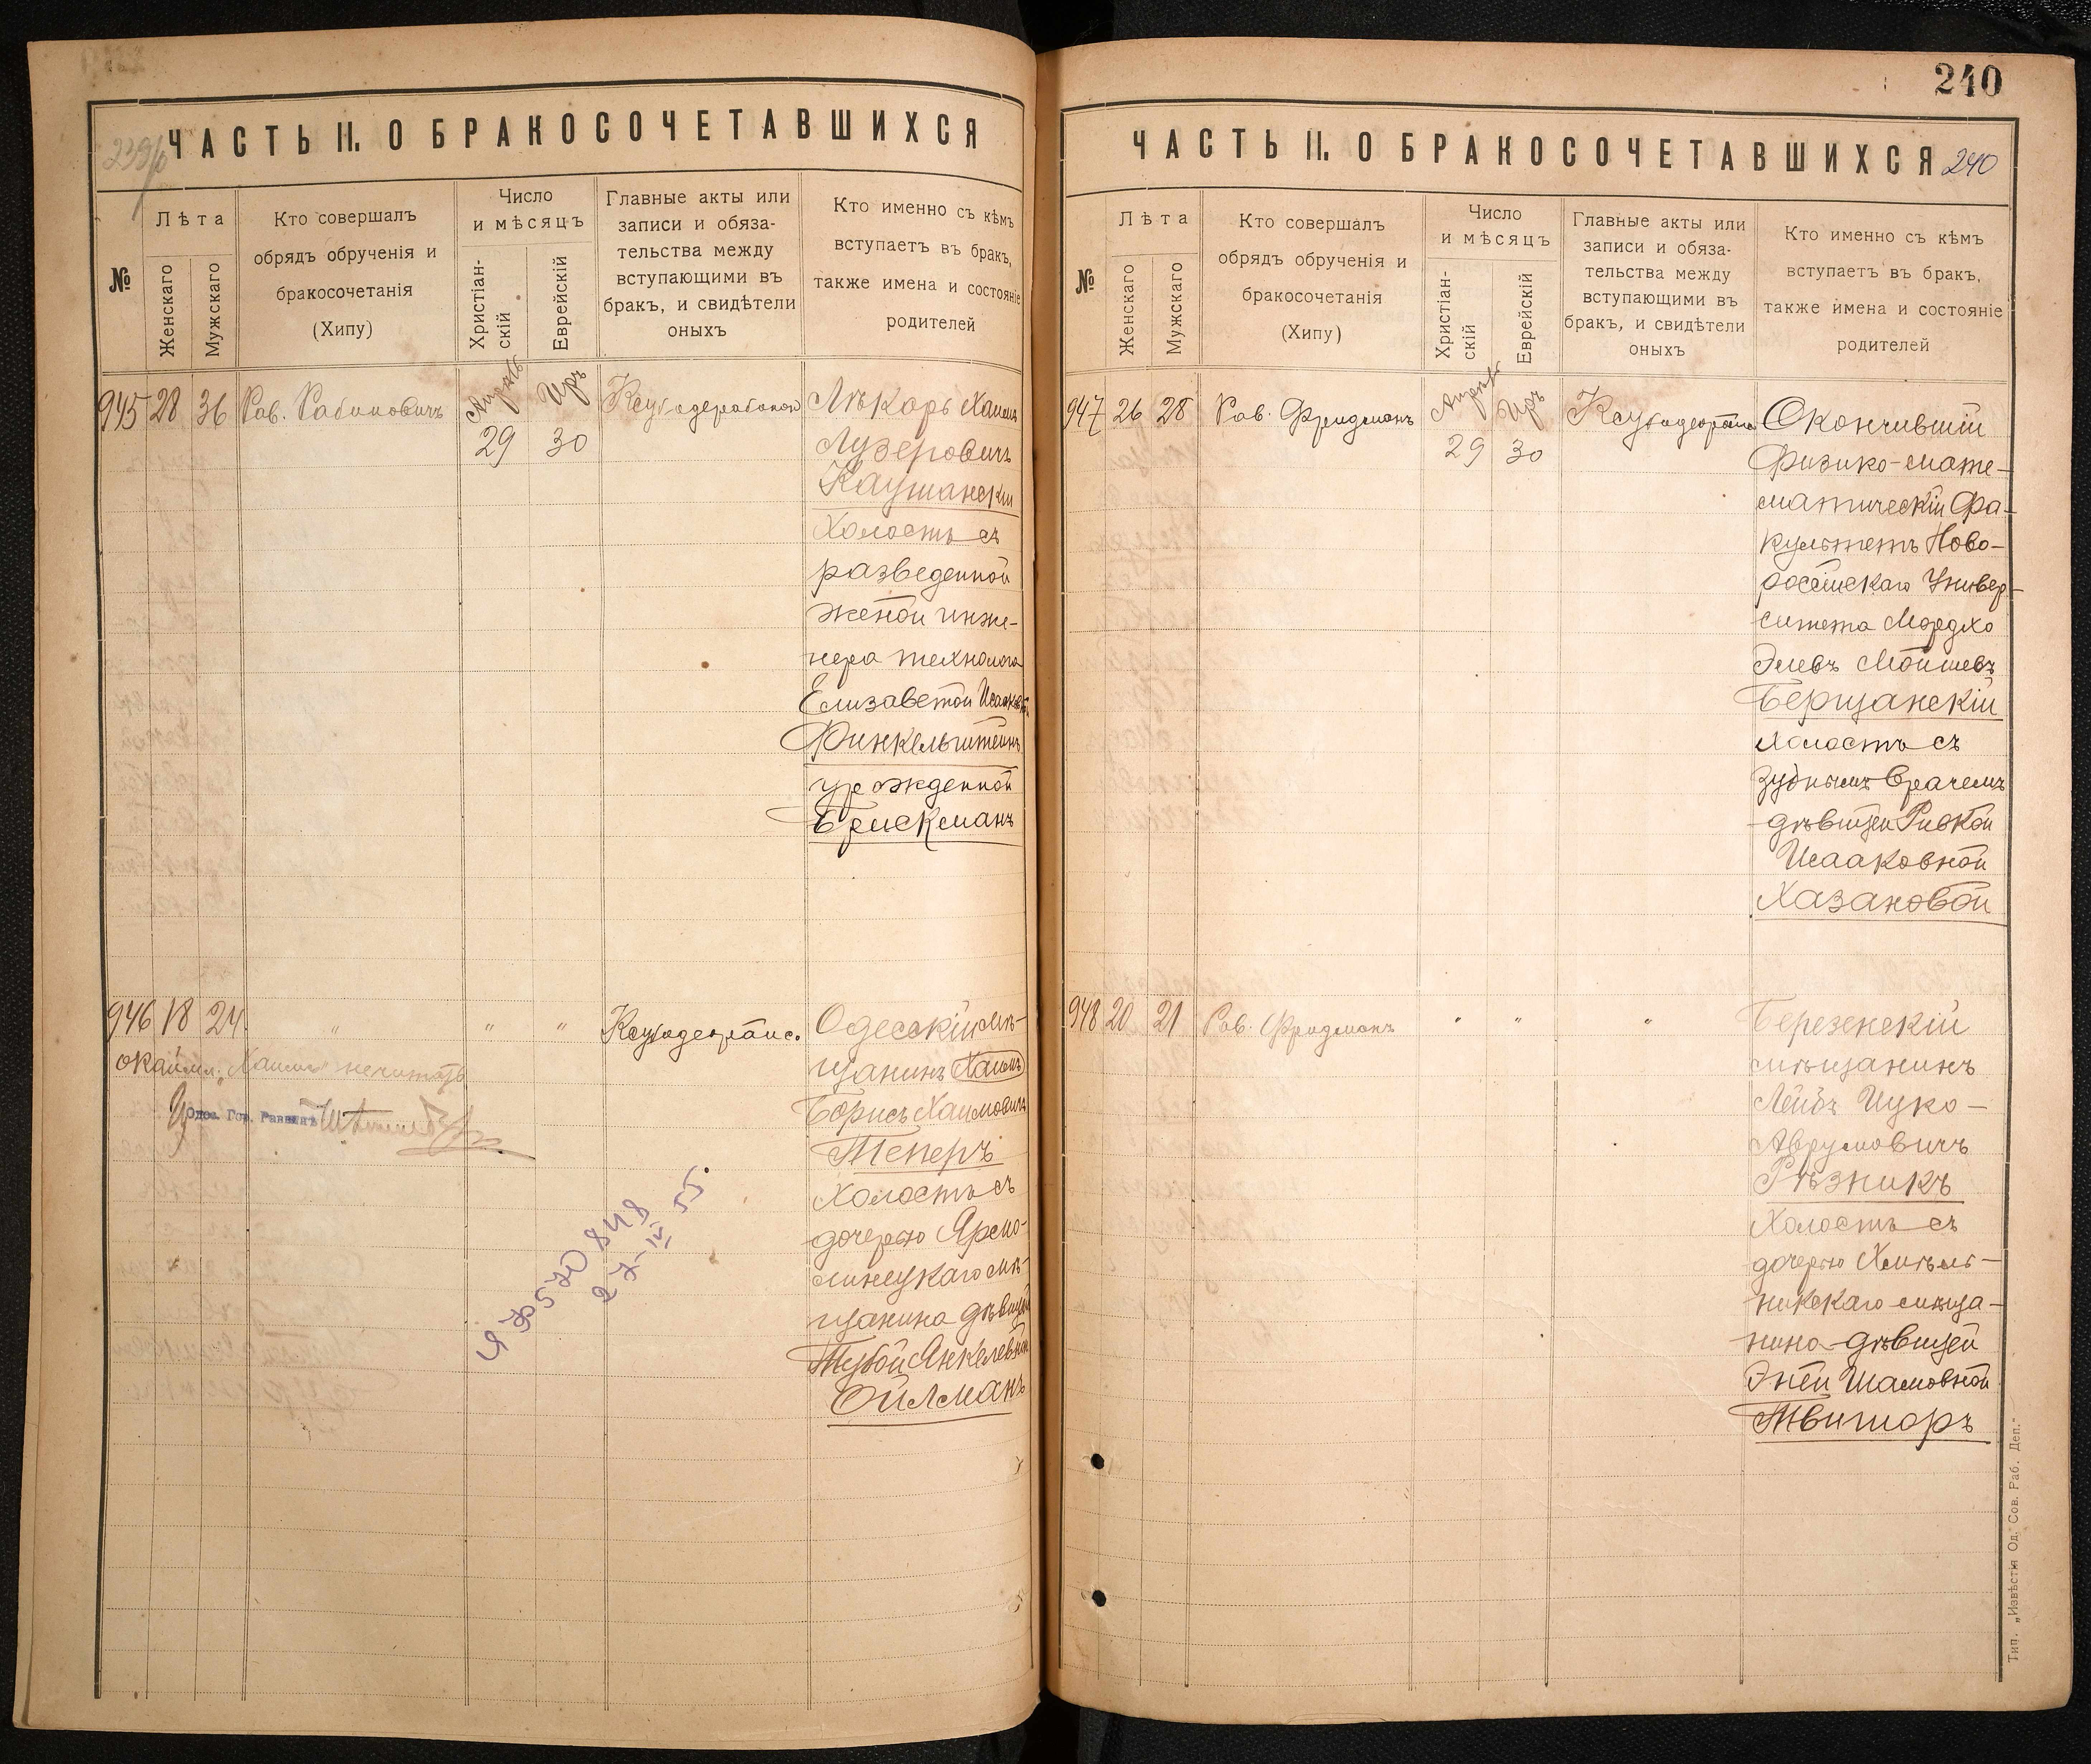 ЧАСТЬ II. О БРАКОСОЧЕТАВШИХСЯ
№
Лѣта
Женскаго
Мужскаго
Кто совершалъ
обрядъ обрученія и
бракосочетанія
(Хипу)
Число
и мѣсяцъ
Христіан-
скій
Еврейскій
Главные акты или
записи и обяза-
тельства между
вступающими въ
бракъ, и свидѣтели
оныхъ
Кто именно съ кѣмъ
вступаетъ въ бракъ,
также имена и состояніе
родителей
945 28 36 Рав. Рабиновичъ
Апрель Иръ
29 30
Лѣкарь Хаимъ
Лузеровичъ
Каушанскій
Холостъ съ
разведенной
женой инже-
нера технолога
Елизаветой
Финкельштейнъ
урожденной
Брискманъ
946 18 24 " " "
окаймл. „Хаимъ" не читать
Одес. Гор. Раввинъ
Одесскій мѣ-
щанинъ Хаимъ
Борисъ Хаимовичъ
Теперъ
Холостъ съ
дочерью Ярмо-
линецкаго мѣ-
щанина дѣвицей
Тубой Янкелевной
Ойлманъ
ЧѢ 570848
27-III 55.
240
ЧАСТЬ II. О БРАКОСОЧЕТАВШИХСЯ 240
№
Лѣта
Женскаго
Мужскаго
Кто совершалъ
обрядъ обрученія и
бракосочетанія
(Хипу)
Число
и мѣсяцъ
Христіан-
скій
Еврейскій
Главные акты или
записи и обяза-
тельства между
вступающими въ
бракъ, и свидѣтели
оныхъ
Кто именно съ кѣмъ
вступаетъ въ бракъ,
также имена и состояніе
родителей
947 26 28 Рав. Фридманъ
Апрель Иръ
29 30
Окончившій
Физико-мате-
матическій Фа-
культетъ Ново-
россійскаго Универ-
ситета Мордхо
Элевъ Мойшевъ
Берщанскій
Холостъ съ
зубнымъ врачемъ
дѣвицей Ривкой
Исааковной
Хазановой
948 20 21 Рав. Фридманъ " " "
Березнскій
мѣщанинъ
Лейбъ Ицко-
Аврумовичъ
Рѣзникъ
Холостъ съ
дочерью Хмѣль-
никскаго мѣща-
нина дѣвицей
Энтей Шамовной
Твиторъ
Тип. „Извѣстія Од. Сов. Раб. Деп."